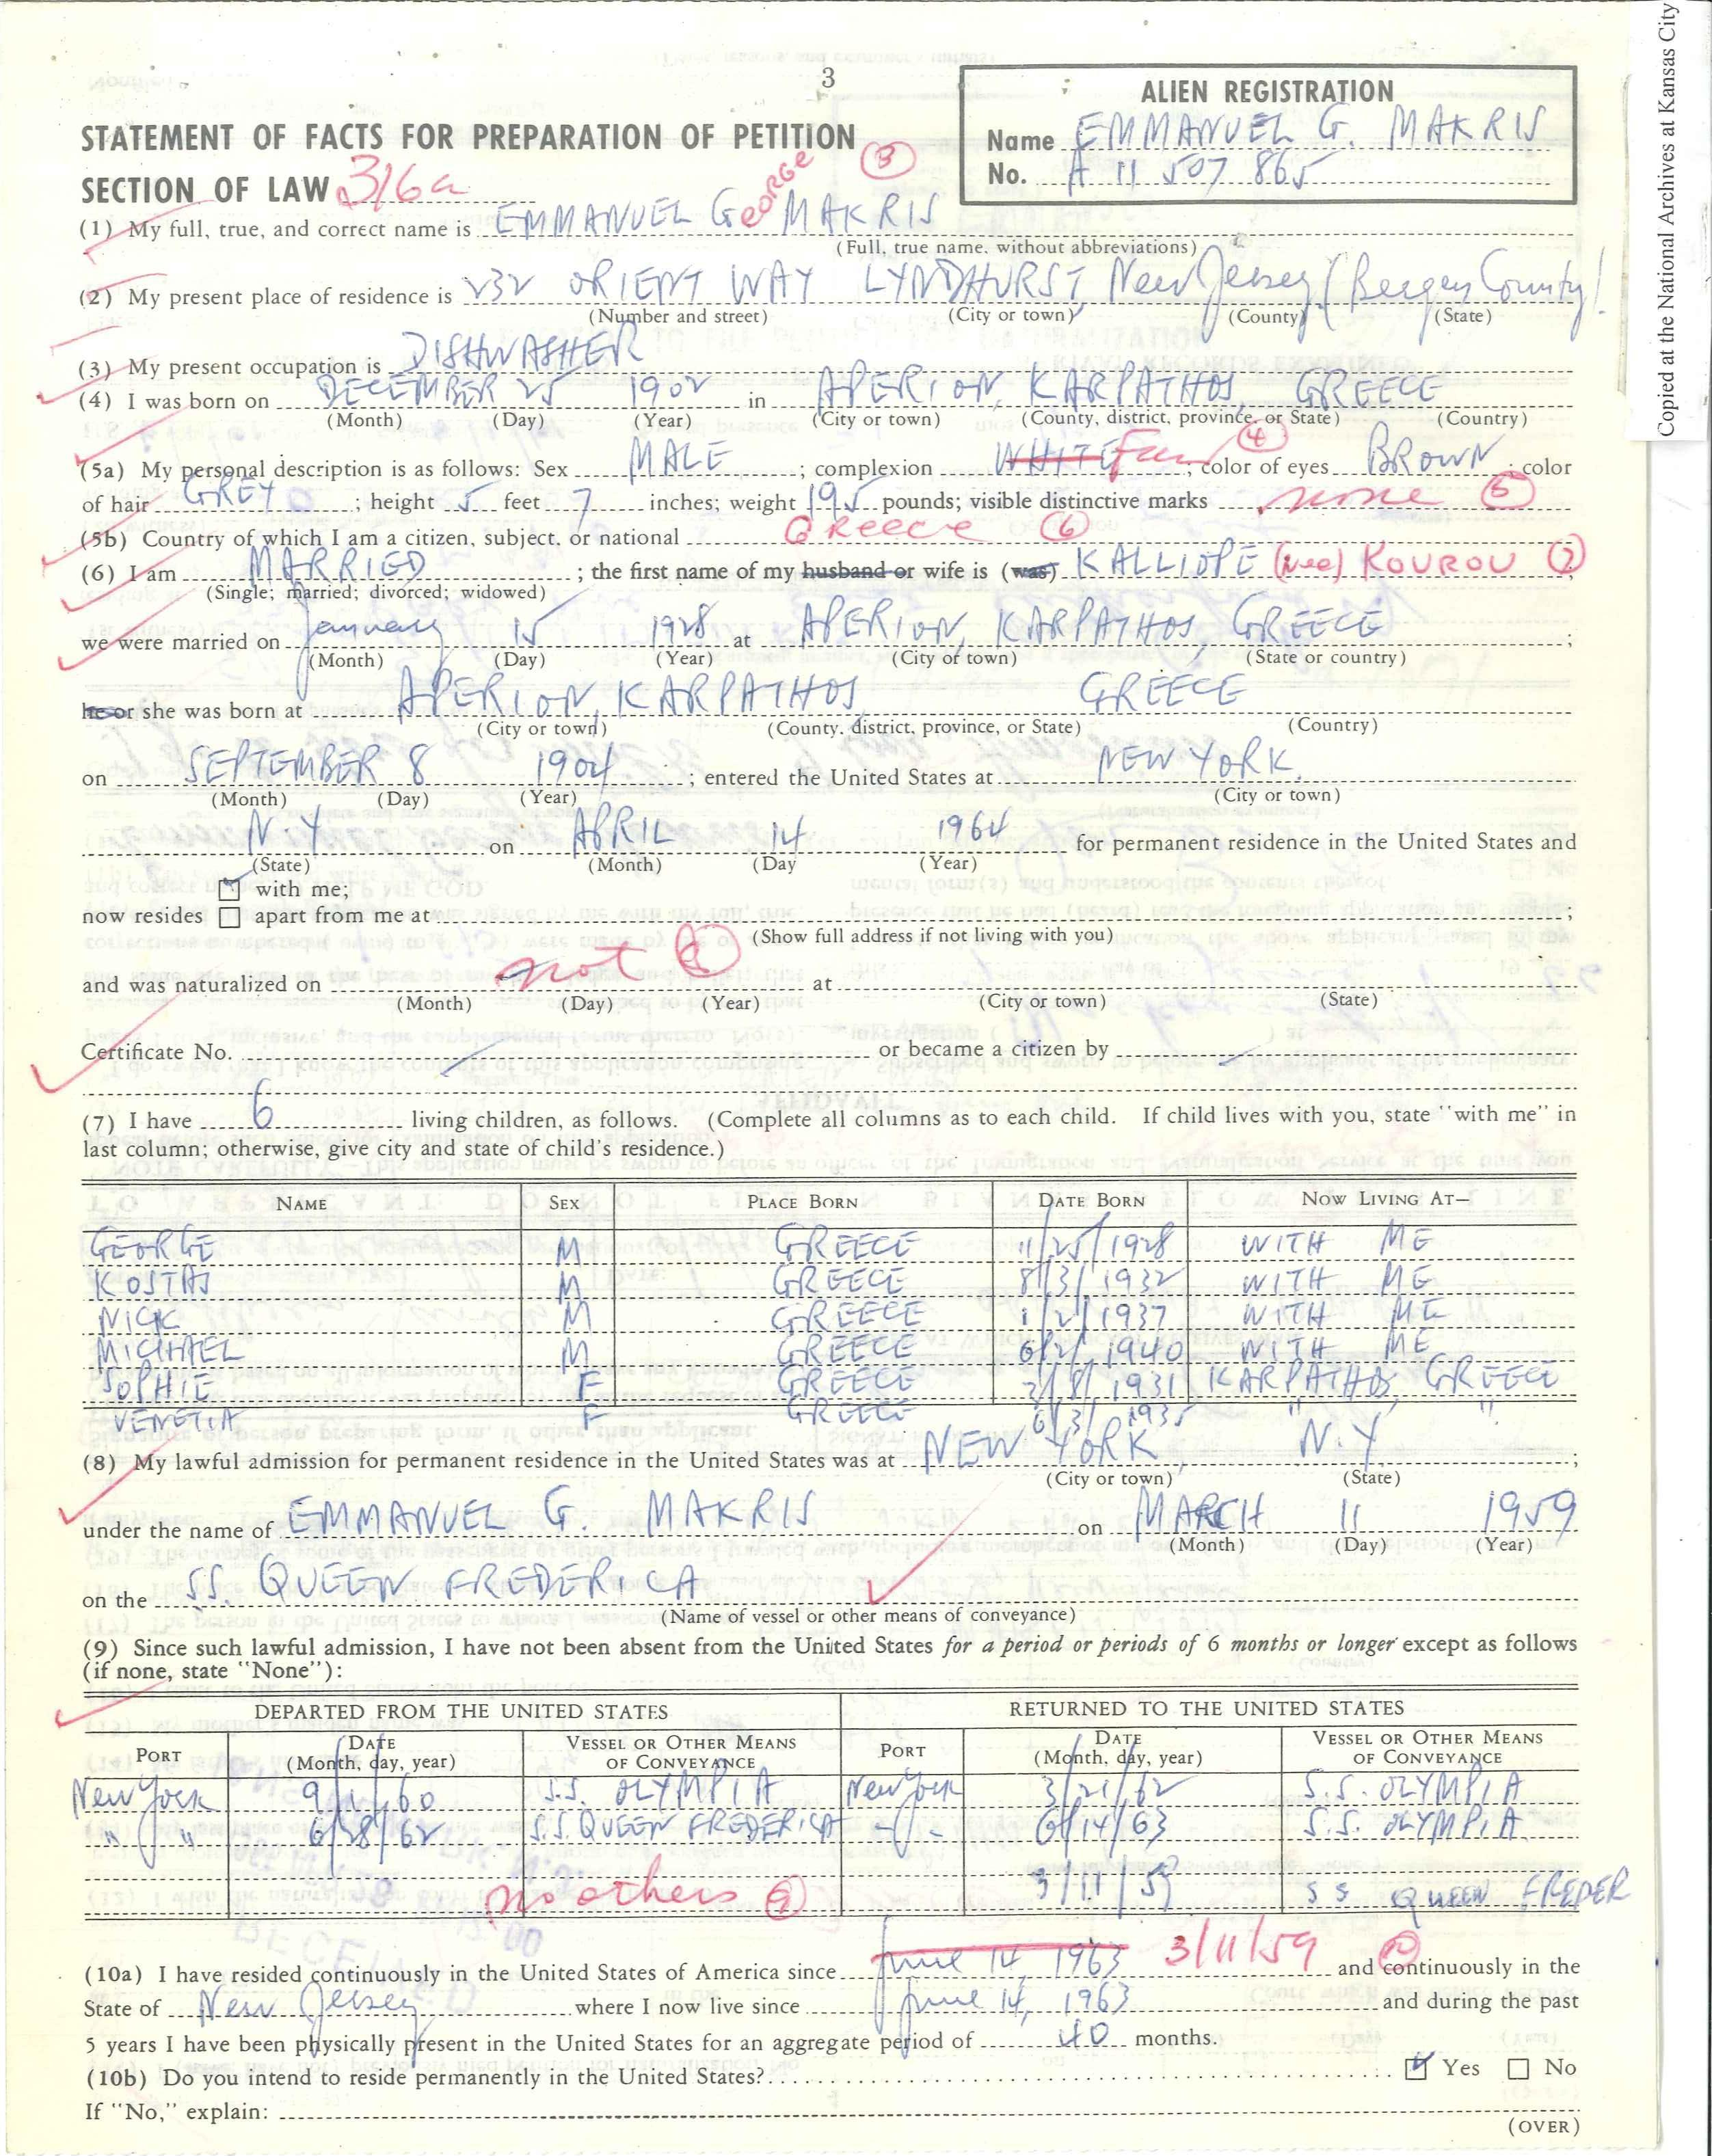 Copied at the National Archives at Kansas City
3
ALIEN REGISTRATION
Name EMMANUEL G. MAKRIS
No. A 11 507 865
STATEMENT OF FACTS FOR PREPARATION OF PETITION (3)
SECTION OF LAW 316a
(1) My full, true, and correct name is EMMANUEL GEORGE MAKRIS
(Full, true name, without abbreviations)
(2) My present place of residence is 232 ORIENT WAY LYNDHURST, New Jersey (Bergen County)
(Number and street) (City or town) (County) (State)
(3) My present occupation is DISHWASHER
(4) I was born on DECEMBER 25 1902 in APERION, KARPATHOS, GREECE
(Month) (Day) (Year) (City or town) (County, district, province, or State) (Country)
(5a) My personal description is as follows: Sex MALE; complexion WHITE Fair (4), color of eyes BROWN; color
of hair GREY; height 5 feet 7 inches; weight 195 pounds; visible distinctive marks none (5)
(5b) Country of which I am a citizen, subject, or national GReece (6)
(6) I am MARRIED; the first name of my husband or wife is (was) KALLIOPE (nee) KOUROU (7)
(Single; married; divorced; widowed)
we were married on January 15 1928 at APERION, KARPATHOS, GREECE;
(Month) (Day) (Year) (City or town) (State or country)
he or she was born at APERION, KARPATHOS, GREECE
(City or town) (County, district, province, or State) (Country)
on SEPTEMBER 8 1904; entered the United States at NEW YORK,
(Month) (Day) (Year) (City or town)
N.Y on APRIL 14 1964 for permanent residence in the United States and
(State) (Month) (Day (Year)
with me;
now resides apart from me at ;
(Show full address if not living with you)
and was naturalized on not (8) at
(Month) (Day) (Year) (City or town) (State)
Certificate No. or became a citizen by
(7) I have 6 living children, as follows. (Complete all columns as to each child. If child lives with you, state "with me" in
last column; otherwise, give city and state of child's residence.)
NAME SEX PLACE BORN DATE BORN NOW LIVING AT—
GEORGE M GREECE 11/25/1928 WITH ME
KOSTAS M GREECE 8/3/1932 WITH ME
NICK M GREECE 1/2/1937 WITH ME
MICHAEL M GREECE 6/2/1940 WITH ME
SOPHIE F GREECE 2/8/1931 KARPATHOS, GREECE
VENETIA F GREECE 6/3/1935 " "
(8) My lawful admission for permanent residence in the United States was at NEW YORK, N.Y;
(City or town) (State)
under the name of EMMANUEL G. MAKRIS on MARCH 11 1959
(Month) (Day) (Year)
on the SS. QUEEN FREDERICA
(Name of vessel or other means of conveyance)
(9) Since such lawful admission, I have not been absent from the United States for a period or periods of 6 months or longer except as follows
(if none, state "None"):
DEPARTED FROM THE UNITED STATES RETURNED TO THE UNITED STATES
PORT DATE (Month, day, year) VESSEL OR OTHER MEANS OF CONVEYANCE PORT DATE (Month, day, year) VESSEL OR OTHER MEANS OF CONVEYANCE
New York 9/1/60 S.S. OLYMPIA New York 3/21/62 S.S. OLYMPIA
" " 6/28/62 S.S. QUEEN FREDERICA - - 6/14/63 S.S. OLYMPIA
no others (9) 3/11/59 S S QUEEN FREDER
(10a) I have resided continuously in the United States of America since June 14, 1963 3/11/59 (10) and continuously in the
State of New Jersey where I now live since June 14, 1963 and during the past
5 years I have been physically present in the United States for an aggregate period of 40 months.
(10b) Do you intend to reside permanently in the United States? Yes No
If "No," explain:
(OVER)